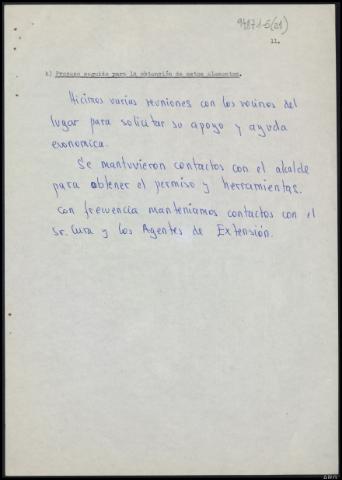 94871-5(21)
11.
k) Proceso seguido para la obtención de estos elementos.
Hicimos varias reuniones con los vecinos del
lugar para solicitar su apoyo y ayuda
economica.
Se mantuvieron contactos con el alcalde
para obtener el permiso y herramientas.
con frecuencia manteniamos contactos con el
sr. Cura y los Agentes de Extensión.